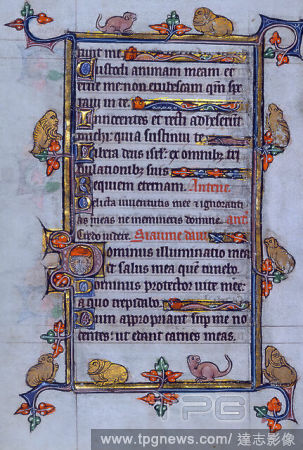 runt me
Custodi animam meam et
erue me non erubescam qm̄ spe
raui in te
Innocentes et recti adheserūt
michi: quia sustinui te
Libera deus isrl̄: ex omnibꝫ tri
bulationibꝫ suis
Requiem eternam. Anteñe.
Delicta iuuentutis mee ⁊ ignoranti
as meas ne memineris domine. añ
Credo videre. dauid
Dominus illuminatio mea
et salus mea quē timebo
Dominus protector uite mee:
a quo trepidabo
Dum appropiant sup̄ me no
centes: ut edant carnes meas.
TPG
www.tpgnews.com / 達志影像